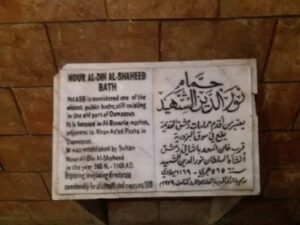 NOUR AL-DIN AL-SHAHEED
BATH
is considered one of the
oldest public baths, still existing
in the old part of Damascus.
It is located in Al-Bzouria market,
adjacent to Khan As'ad Pasha in
Damascus.
It was established by Sultan
Nour Al-Din Al-Shaheed
in the year 565 H. - 1169 AD.
حمام
نور الدين الشهيد
يعتبر من أقدم حمامات دمشق القديمة
يقع في سوق البزورية
قرب خان أسعد باشا في دمشق
أنشأه السلطان نور الدين الشهيد
سنة ٥٦٥ هجري - ١١٦٩ ميلادي